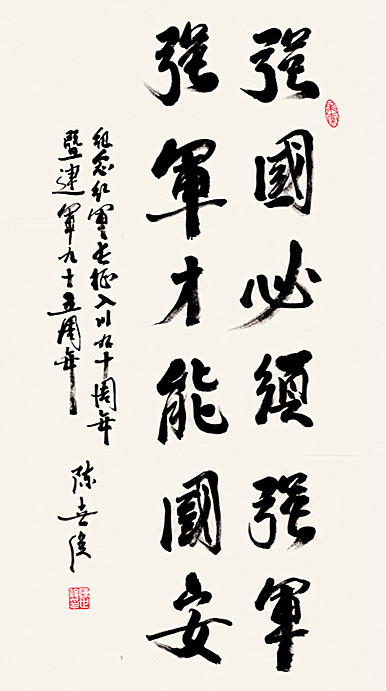 强國必須强軍
强軍才能國安
纪念红軍长征入川九十周年
暨建軍九十五周年
陈喜俊